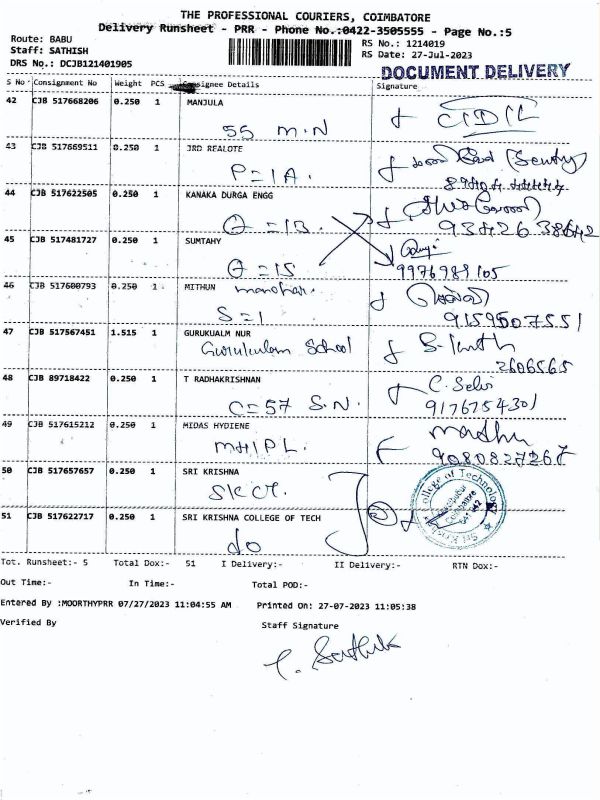 THE PROFESSIONAL COURIERS, COIMBATORE
Delivery Runsheet - PRR - Phone No.:0422-3505555 - Page No.:5
Route: BABU
Staff: SATHISH
DRS No.: DCJB121401905
RS No.: 1214019
RS Date: 27-Jul-2023
DOCUMENT DELIVERY
S No Consignment No Weight PCS Consignee Details Signature
42 CJB 517668206 0.250 1 MANJULA
55 M.N
43 CJB 517669511 0.250 1 JRD REALOTE
P=1A.
44 CJB 517622505 0.250 1 KANAKA DURGA ENGG
9342638642
45 CJB 517481727 0.250 1 SUMTAHY
9976989105
46 CJB 517600793 0.250 1 MITHUN manohar.
S=1
9159507551
47 CJB 517567451 1.515 1 GURUKUALM NUR
Gurukulam School
2606565
48 CJB 89718422 0.250 1 T RADHAKRISHNAN
C=57 S.N. C. Selvi
9176754301
49 CJB 517615212 0.250 1 MIDAS HYDIENE
MHIPL. Madhu
9080827267
50 CJB 517657657 0.250 1 SRI KRISHNA
SKCT.
51 CJB 517622717 0.250 1 SRI KRISHNA COLLEGE OF TECH
do
College of Technology
Coimbatore
Tot. Runsheet:- 5 Total Dox:- 51 I Delivery:- II Delivery:- RTN Dox:-
Out Time:- In Time:- Total POD:-
Entered By :MOORTHYPRR 07/27/2023 11:04:55 AM Printed On: 27-07-2023 11:05:38
Verified By Staff Signature